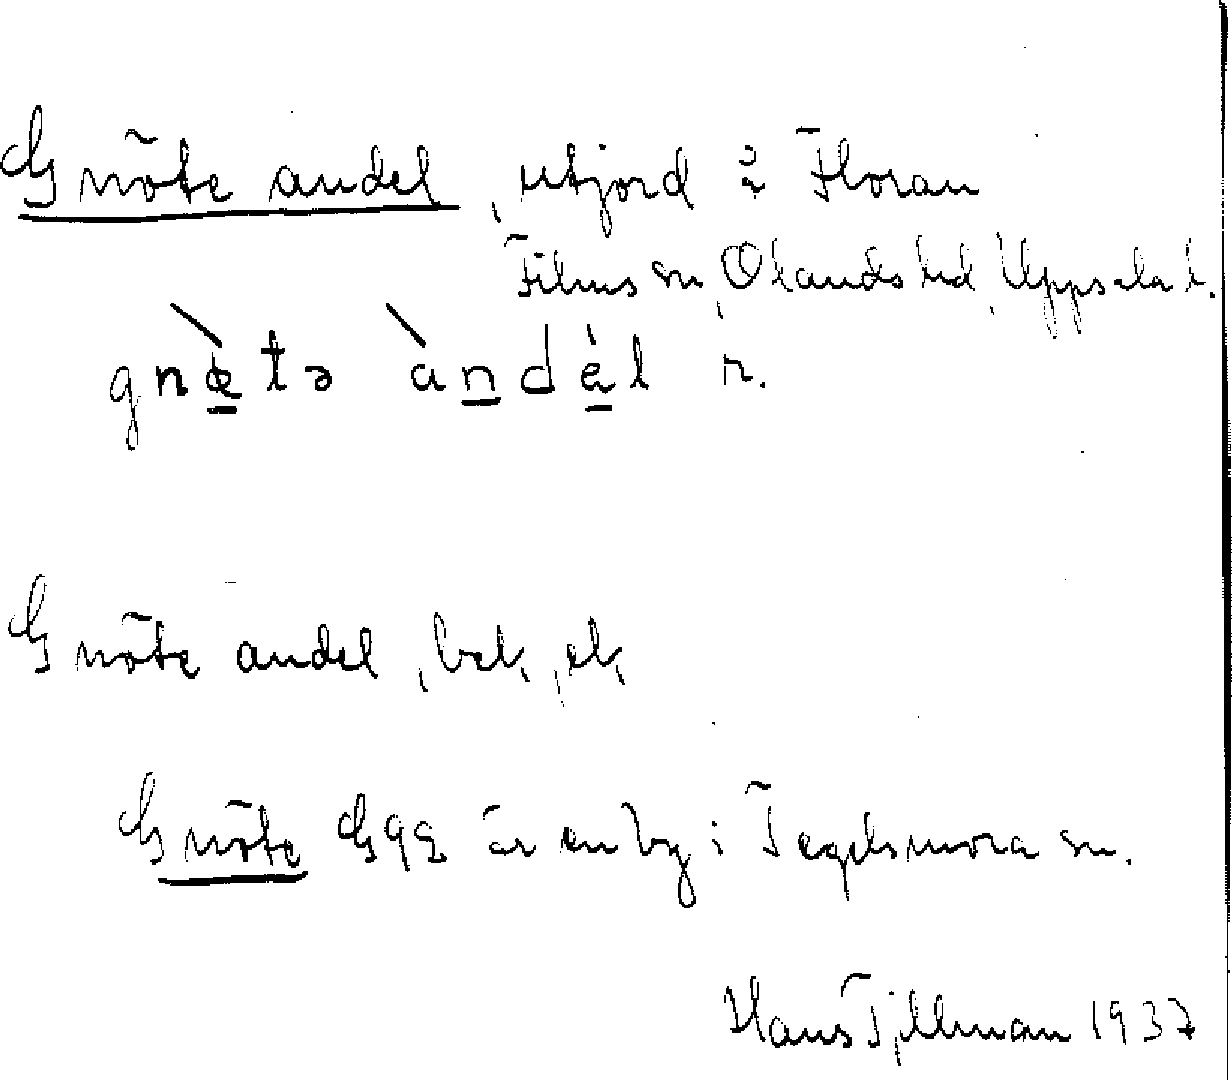 Gnöte andel, utjord å Floran
Films sn, Olands hd, Uppsala l.
gnø̱̀tə àṉdèḻ r.
Gnöte andel, bek, ek
Gnöte G92 är en by i Tegelsmora sn.
Hans Tjillman 1937